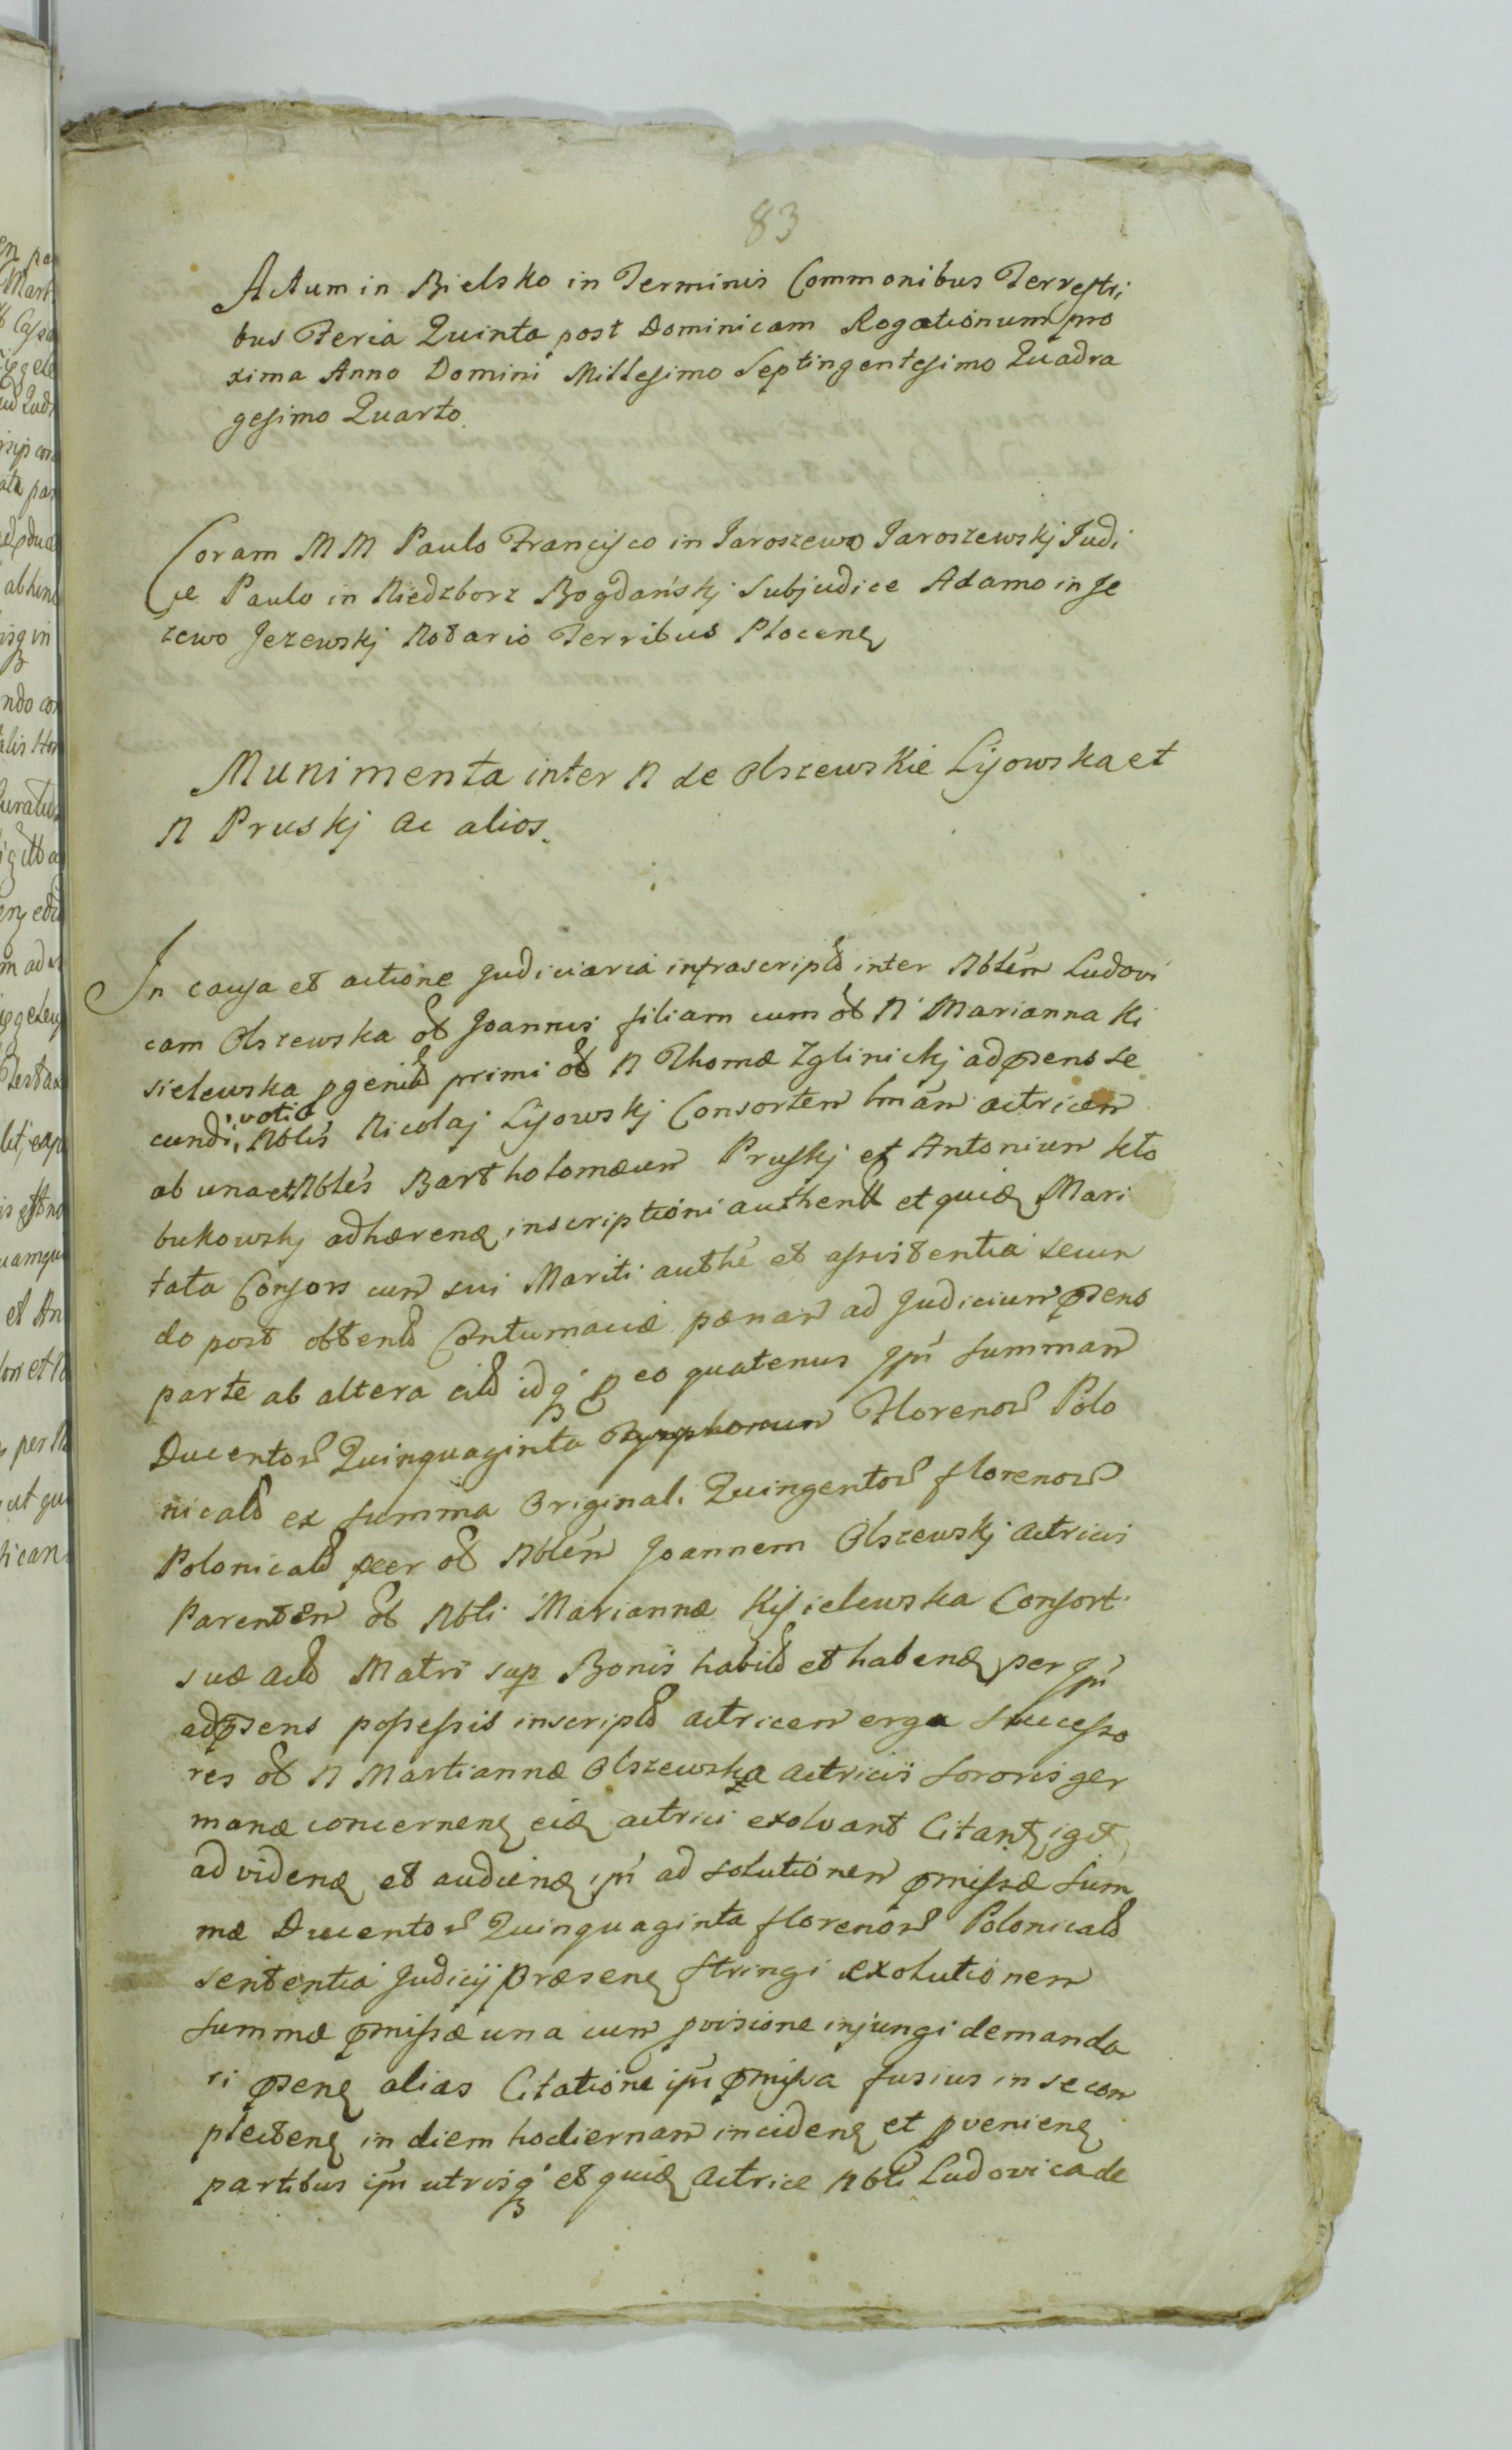 83
Actum in Bielsko in Terminis Commonibus Terrestri
bus Feria Quinta post Dominicam Rogationum pro
xima Anno Domini Millesimo Septingentesimo Quadra
gesimo Quarto
Coram MM Paulo Francisco in Jaroszewo Jaroszewskj Judi
ce Paulo in Niedzborz Bogdańskj Subjudice Adamo in Je
zewo Jezewskj Notario Terribus Plocen
Munimenta inter N de Olszewskie Lisowska et
N Pruskj ac alios
In causa et actione Judiciaria infrascript inter Nblem Ludovi
cam Olszewska ol Joannis filiam cum ol N Marianna Ki
sielewska pgenit primi ol N Thomæ Zglinickj adpsens se
cundi voti Nblis Nicolaj Lisowskj Consortem actricem
ab una et Nbles Bartholomæum Pruskj et Antonium Kło
bukowskj adhæren inscriptioni authent et quid Mari
tata Consors cum sui Mariti authe et assistentia secun
do post obtent Contumaciæ pænam ad Judicium psens
parte ab altera cit idq p eo quatenus ipsi Summam
Ducentor Quinquaginta Florenor Polo
nical ex Summa Original. Quingentor florenor
Polonical per ol Nblem Joannem Olszewskj actricis
Parentem ol Nbli Mariannæ Kisielewska Consort.
suæ act Matri sup Bonis habit et haben per ipsos
adpsens possessis inscript actricem erga Successo
res ol N Martiannæ Olszewska actricis sororis ger
manæ concernen eid actrici exolvant Citant igit
ad viden et audien ipsi ad solutionem pmissæ Sum
mæ Ducentor Quinquaginta florenor Polonical
sententia Judicij præsen stringi exolutionem
Summæ pmissæ una cum pvisione injungi demanda
ri psen alias Citatione ipsi pmissa fusius in se com
plecten in diem hodiernam inciden et pvenien
partibus ipsis utrisq et quid Actrice Nbli Ludovica de